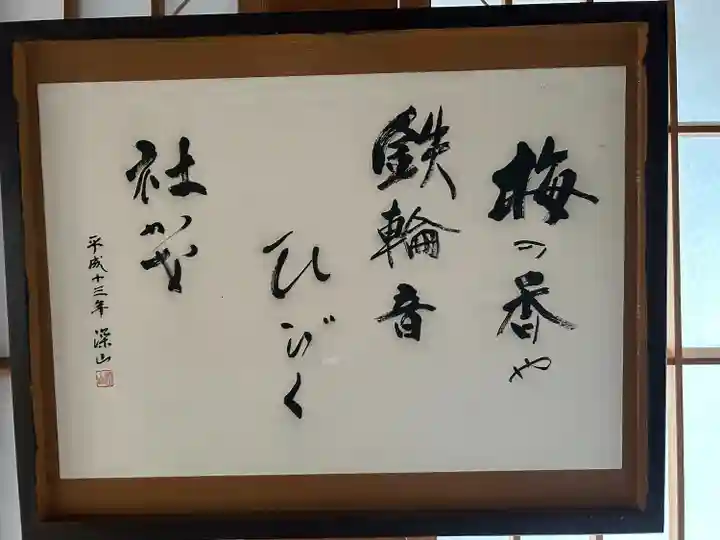 梅の香や
鉄輪音
ひびく
社
平成十三年 深山